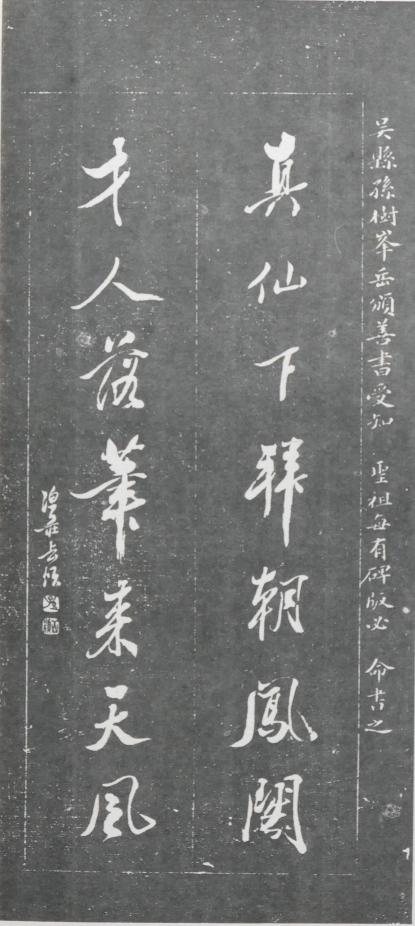 吴縣孫樹峯岳頒善書受知　聖祖每有碑版必　命書之
真仙下拜朝鳳闕
才人落筆來天風
岳頒